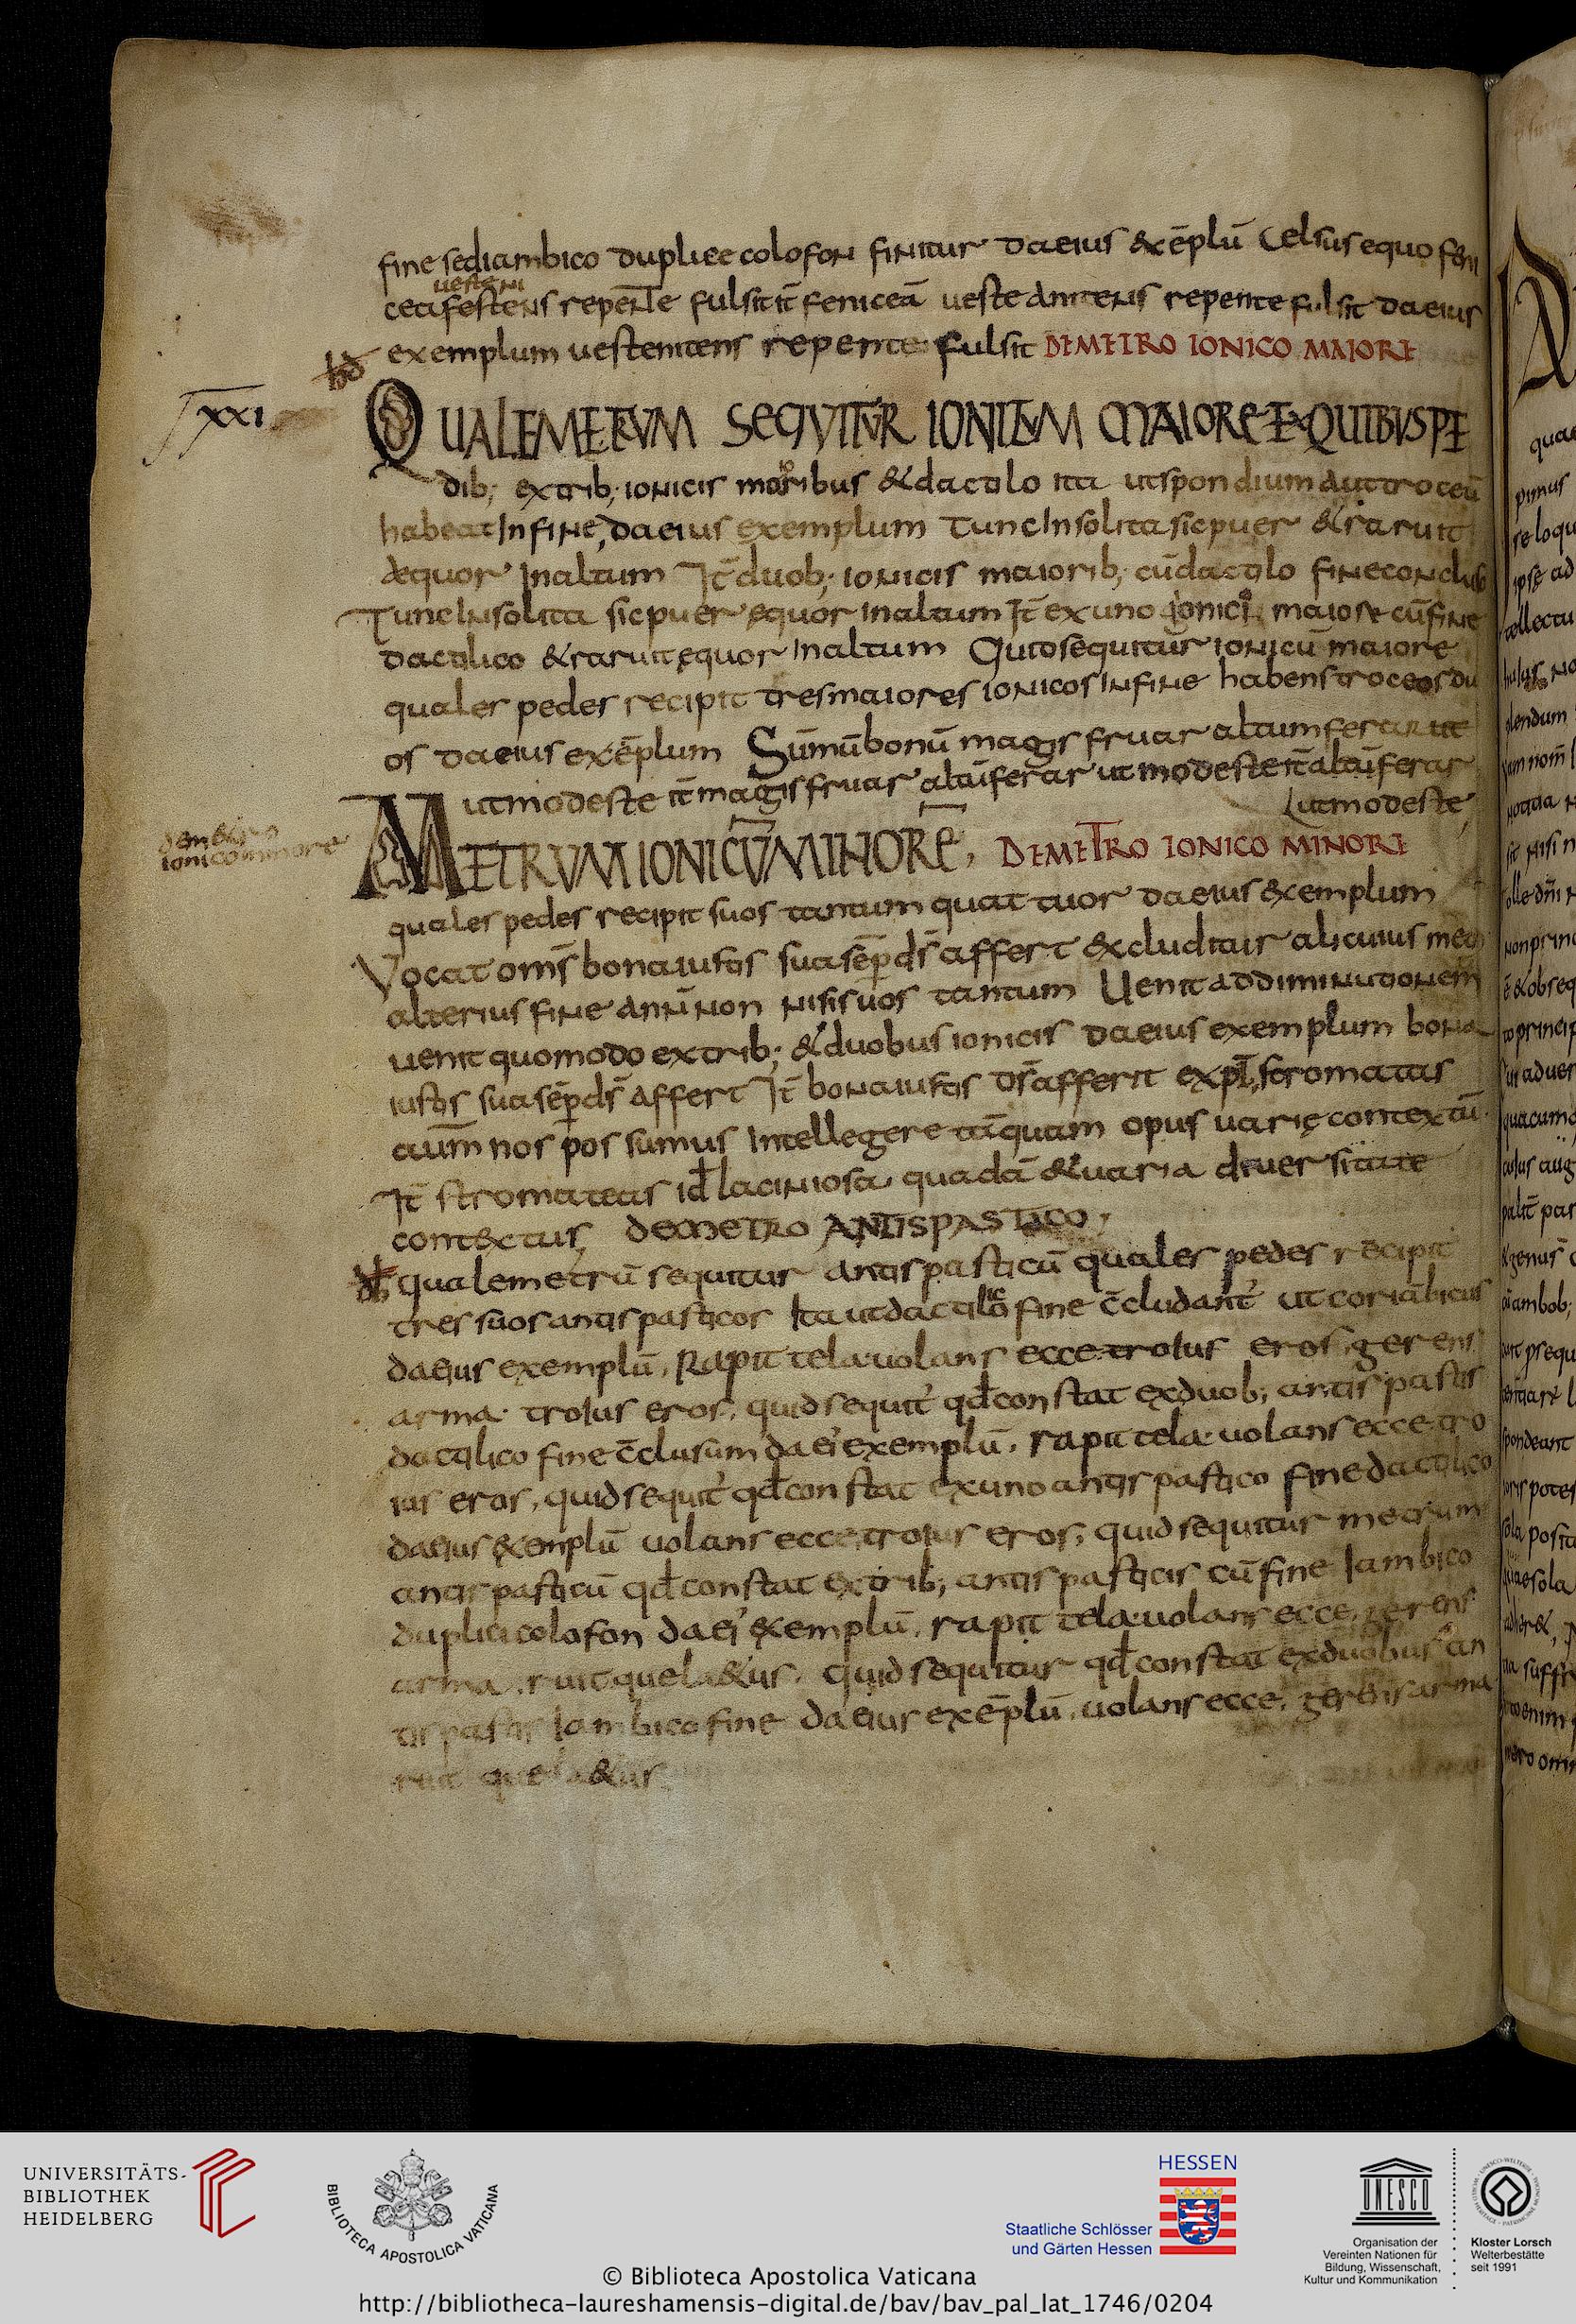 fine sed iambico duplice colofon finitur da eius & exēplū Celsus equo feni
uesteni
cea festens repente fulsit it̄ feniceā ueste nitens repente fulsit da eius
exemplum ueste nitens repente fulsit DE METRO IONICO MAIORE
XXI
QUALE METRUM SEQUITUR IONICUM MAIORE EX QUIBUS PE
dib; ex trib; ionicis maioribus & dactilo ita ut spondium aut troceū
habeat in fine, da eius exemplum Tunc insolita sic puer & raruit
aequor in altum It̄ duob; ionicis maiorib; cū dactilo fine concluso
Tunc insolita sic puer ęquor in altum It̄ ex uno ionico maiore cū fine
dactilico & raruit ęquor in altum Quid sequitur ionicū maiore
quales pedes recipit tres maiores ionicos in fine habens troceos du
os da eius exēplum Sūmū bonū magis fruar altum ferar ut
ut modeste it̄ magis fruar altū ferar ut modeste it̄ altū ferar
ut modeste,
de metro
ionico minore
METRUM IONICŪ MINORE, DE METRO IONICO MINORE
quales pedes recipit suos tantum quattuor da eius exemplum
Vocat om̄s bona iustis sua sēp d̄s affert & cluditur alicuius meo
alterius fine an n̄ non nisi suos tantum Uenit ad diminutionem
uenit quomodo ex trib; & duobus ionicis da eius exemplum bona
iustis sua sēp d̄s affert It̄ bona iustis d̄s afferit expl̄, stromatas
autm̄ nos possumus intellegere tāquam opus uarię contextū.
It̄ stromateas id̄ laciniosa quadā & uaria diuersitate
cont&us, DE METRO ANTISPASTICO,
quale metrū sequitur antispasticū quales pedes recipit
tres suos antispasticos Ita ut dactilico fine c̄cludant̄ ut coriābicus
da eius exemplū, Rapit tela: uolans ecce troius eros, gerens
arma. troius eros, quid sequit̄ qd̄ constat ex duob; antispastis
dactilico fine c̄clusum da ei' exemplū, rapit tela: uolans ecce tro
ius eros, quid sequit̄ qd̄ constat ex uno antispastico fine dactilico
da eius exemplū uolans ecce, troius eros, quid sequitur metrum
antispasticū qd̄ constat ex trib; antispasticis cū fine Iambico
duplici colofon da ei' exemplū, rapit tela: uolans ecce, gerens
arma, ruit que la&us, quid sequitur qd̄ constat ex duobus an
tispastis Iambico fine da eius exēplū, uolans ecce, gerens arma
ruit que la&us
UNIVERSITÄTS-
BIBLIOTHEK
HEIDELBERG
BIBLIOTECA APOSTOLICA VATICANA
HESSEN
Staatliche Schlösser
und Gärten Hessen
UNESCO
Organisation der
Vereinten Nationen für
Bildung, Wissenschaft,
Kultur und Kommunikation
Kloster Lorsch
Welterbestätte
seit 1991
© Biblioteca Apostolica Vaticana
http://bibliotheca-laureshamensis-digital.de/bav/bav_pal_lat_1746/0204